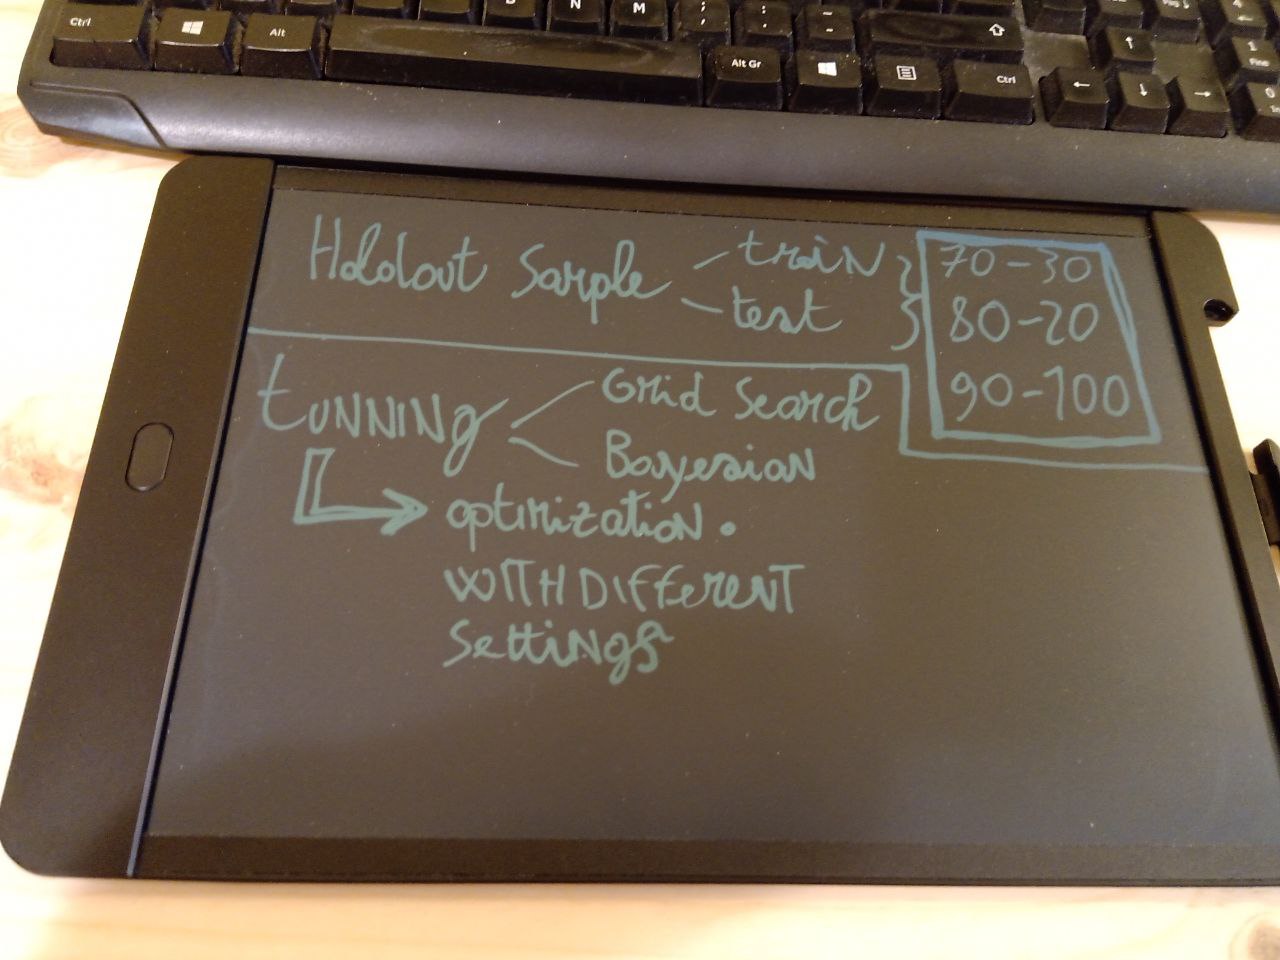 Ctrl Alt B N M ; : - Alt Gr Ctrl 1 Fine 0
Holdout Sample train 70-30
test 80-20
90-100
tUNNING Grid Search
Bayesian
optimization.
WITH DIFFERENT
Settings